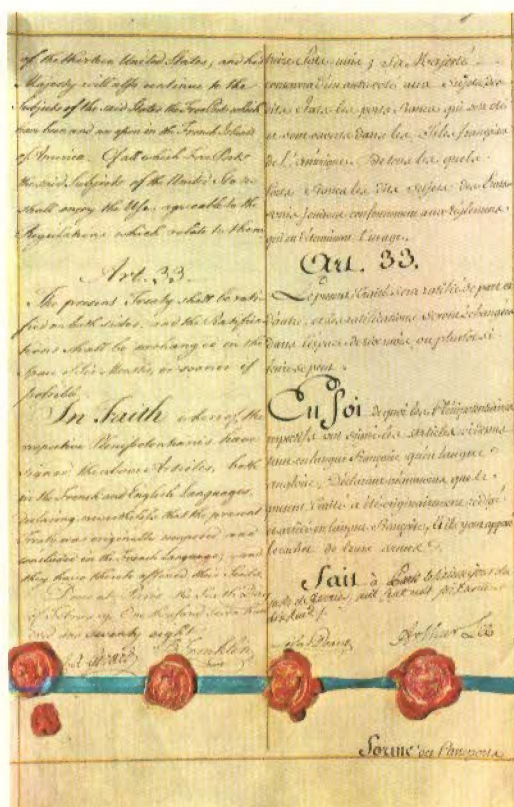 of the thirteen United States; and his
Majesty will also continue to the
Subjects of the said States the Free Ports which
have been and are open in the French Islands
of America. Of all which Free Ports
the said Subjects of the United States
shall enjoy the Use, agreable to the
Regulations which relate to them.
Art. 33.
The present Treaty shall be rati-
fied on both sides, and the Ratifica-
tions shall be exchanged in the
Space of Six Months, or sooner if
possible.
In Faith whereof, the
respective Plenipotentiaries have
signed the above Articles, both
in the French and English Languages
declaring nevertheless that the present
Treaty was originally composed and
concluded in the French Language; and
they have thereto affixed their Seals
Done at Paris the Sixth Day
of February, One thousand Seven hundred
and seventy eight
B Franklin
Sa Majesté
conservera aux Sujets des
dits Etats les ports francs qui ont été
et sont ouverts dans les Isles françaises
de l'Amérique. De tous les quels
Ports francs les dits Sujets des Etats
unis jouiront conformément aux Réglemens
qui en déterminent l'usage.
Art. 33.
Le présent Traité sera ratifié de part et
d'autre, et les ratifications seront échangées
dans l'espace de six mois ou plustot si
faire se peut.
En foi de quoi les Plénipotentiaires
respectifs ont signé les articles ci dessus
tant en langue françoise qu'en langue
angloise, Déclarant néanmoins que le
présent Traité a été originairement rédigé
et arrêté en langue françoise, et ils y ont apposé
le cachet de leurs armes.
Fait à Paris le sixième jour du
mois de février, mil sept cent soixante
dix huit.
Silas Deane
Arthur Lee